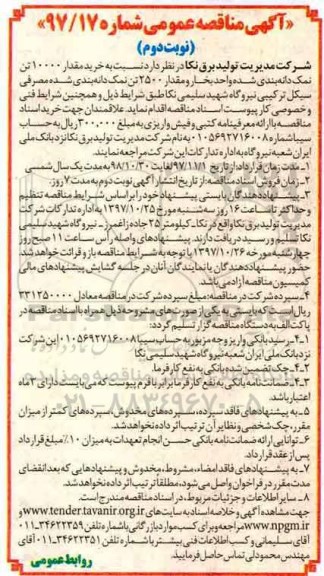 «آگهی مناقصه عمومی شماره ۹۷/۱۷»
(نوبت دوم)
شرکت مدیریت تولید برق نکا در نظر دارد نسبت به خرید مقدار ۱۰۰۰۰ تن
نمک دانه‌بندی شده واحد بخار و مقدار ۲۵۰۰ تن نمک دانه‌بندی شده مصرفی
سیکل ترکیبی نیروگاه شهید سلیمی نکا طبق شرایط ذیل و همچنین شرایط فنی
و خصوصی کار پیوست اسناد مناقصه اقدام نماید. علاقمندان جهت خرید اسناد
مناقصه با ارائه معرفینامه کتبی و فیش واریزی به مبلغ ۳۰۰,۰۰۰ ریال به حساب
سیبا شماره ۰۱۰۵۶۹۲۷۱۶۰۰۸ به نام شرکت مدیریت تولید برق نکا نزد بانک ملی
ایران شعبه نیروگاه به اداره تدارکات این شرکت مراجعه نمایند.
۱- مدت زمان قرارداد: از تاریخ ۹۷/۱۱/۱ لغایت ۹۸/۱۰/۳۰ به مدت یک سال شمسی
۲- زمان فروش اسناد مناقصه: از تاریخ انتشار آگهی نوبت دوم به مدت ۷ روز.
۳- پیشنهاددهندگان بایستی پیشنهاد خود را بر اساس شرایط مناقصه تنظیم
و حداکثر تا ساعت ۱۶ روز سه‌شنبه مورخ ۱۳۹۷/۱۰/۲۵ به اداره تدارکات شرکت
مدیریت تولید برق نکا واقع در نکا-کیلومتر ۲۵ جاده زاغمرز- نیروگاه شهید سلیمی
نکا تسلیم و رسید دریافت دارند. پیشنهادهای واصله رأس ساعت ۱۱ صبح روز
چهارشنبه مورخه ۱۳۹۷/۱۰/۲۶ با توجه به شرایط مناقصه باز و قرائت خواهد شد.
حضور پیشنهاددهندگان یا نمایندگان آنان در جلسه گشایش پیشنهادهای مالی
کمیسیون مناقصه آزاد می‌باشد.
۴- سپرده شرکت در مناقصه: مبلغ سپرده شرکت در مناقصه معادل ۳۳۱۲۵۰۰۰۰
ریال است که بایستی به یکی از صورتهای مشروحه ذیل همراه با اسناد مناقصه در
پاکت الف به دستگاه مناقصه گزار تسلیم گردد:
۱-۴- رسید بانکی واریز وجه مزبور به حساب سیبا ۰۱۰۵۶۹۲۷۱۶۰۰۸ این شرکت
نزد بانک ملی ایران شعبه نیروگاه شهید سلیمی نکا
۲-۴- چک تضمین شده بانکی به نفع کارفرما.
۳-۴- ضمانت‌نامه بانکی به نفع کارفرما برابر با فرم پیوست که می‌بایست دارای ۳ ماه
اعتبار باشد.
۵- به پیشنهادهای فاقد سپرده، سپرده‌های مخدوش، سپرده‌های کمتر از میزان
مقرر، چک شخصی و نظایر آن ترتیب اثر داده نخواهد شد.
۶- توانایی ارائه ضمانت‌نامه بانکی حسن انجام تعهدات به میزان ۱۰٪ مبلغ قرارداد
پس از عقد قرارداد.
۷- به پیشنهادهای فاقد امضاء، مشروط، مخدوش و پیشنهادهایی که بعد انقضای
مدت مقرر در فراخوان واصل می‌شود، مطلقاً ترتیب اثر داده نخواهد شد.
۸- سایر اطلاعات و جزئیات مربوط، در اسناد مناقصه مندرج است.
جهت مشاهده آگهی و خلاصه اسناد به سایت های www.tender.tavanir.org.ir و
www.npgm.ir مراجعه و برای کسب موارد بازرگانی با شماره تلفن ۳۴۶۲۲۳۵۹-۰۱۱
آقای سلیمانی و کسب اطلاعات فنی بیشتر با شماره تلفن ۳۴۶۲۲۳۵۱-۰۱۱ آقای
مهندس محمودلی تماس حاصل فرمایید.
روابط عمومی